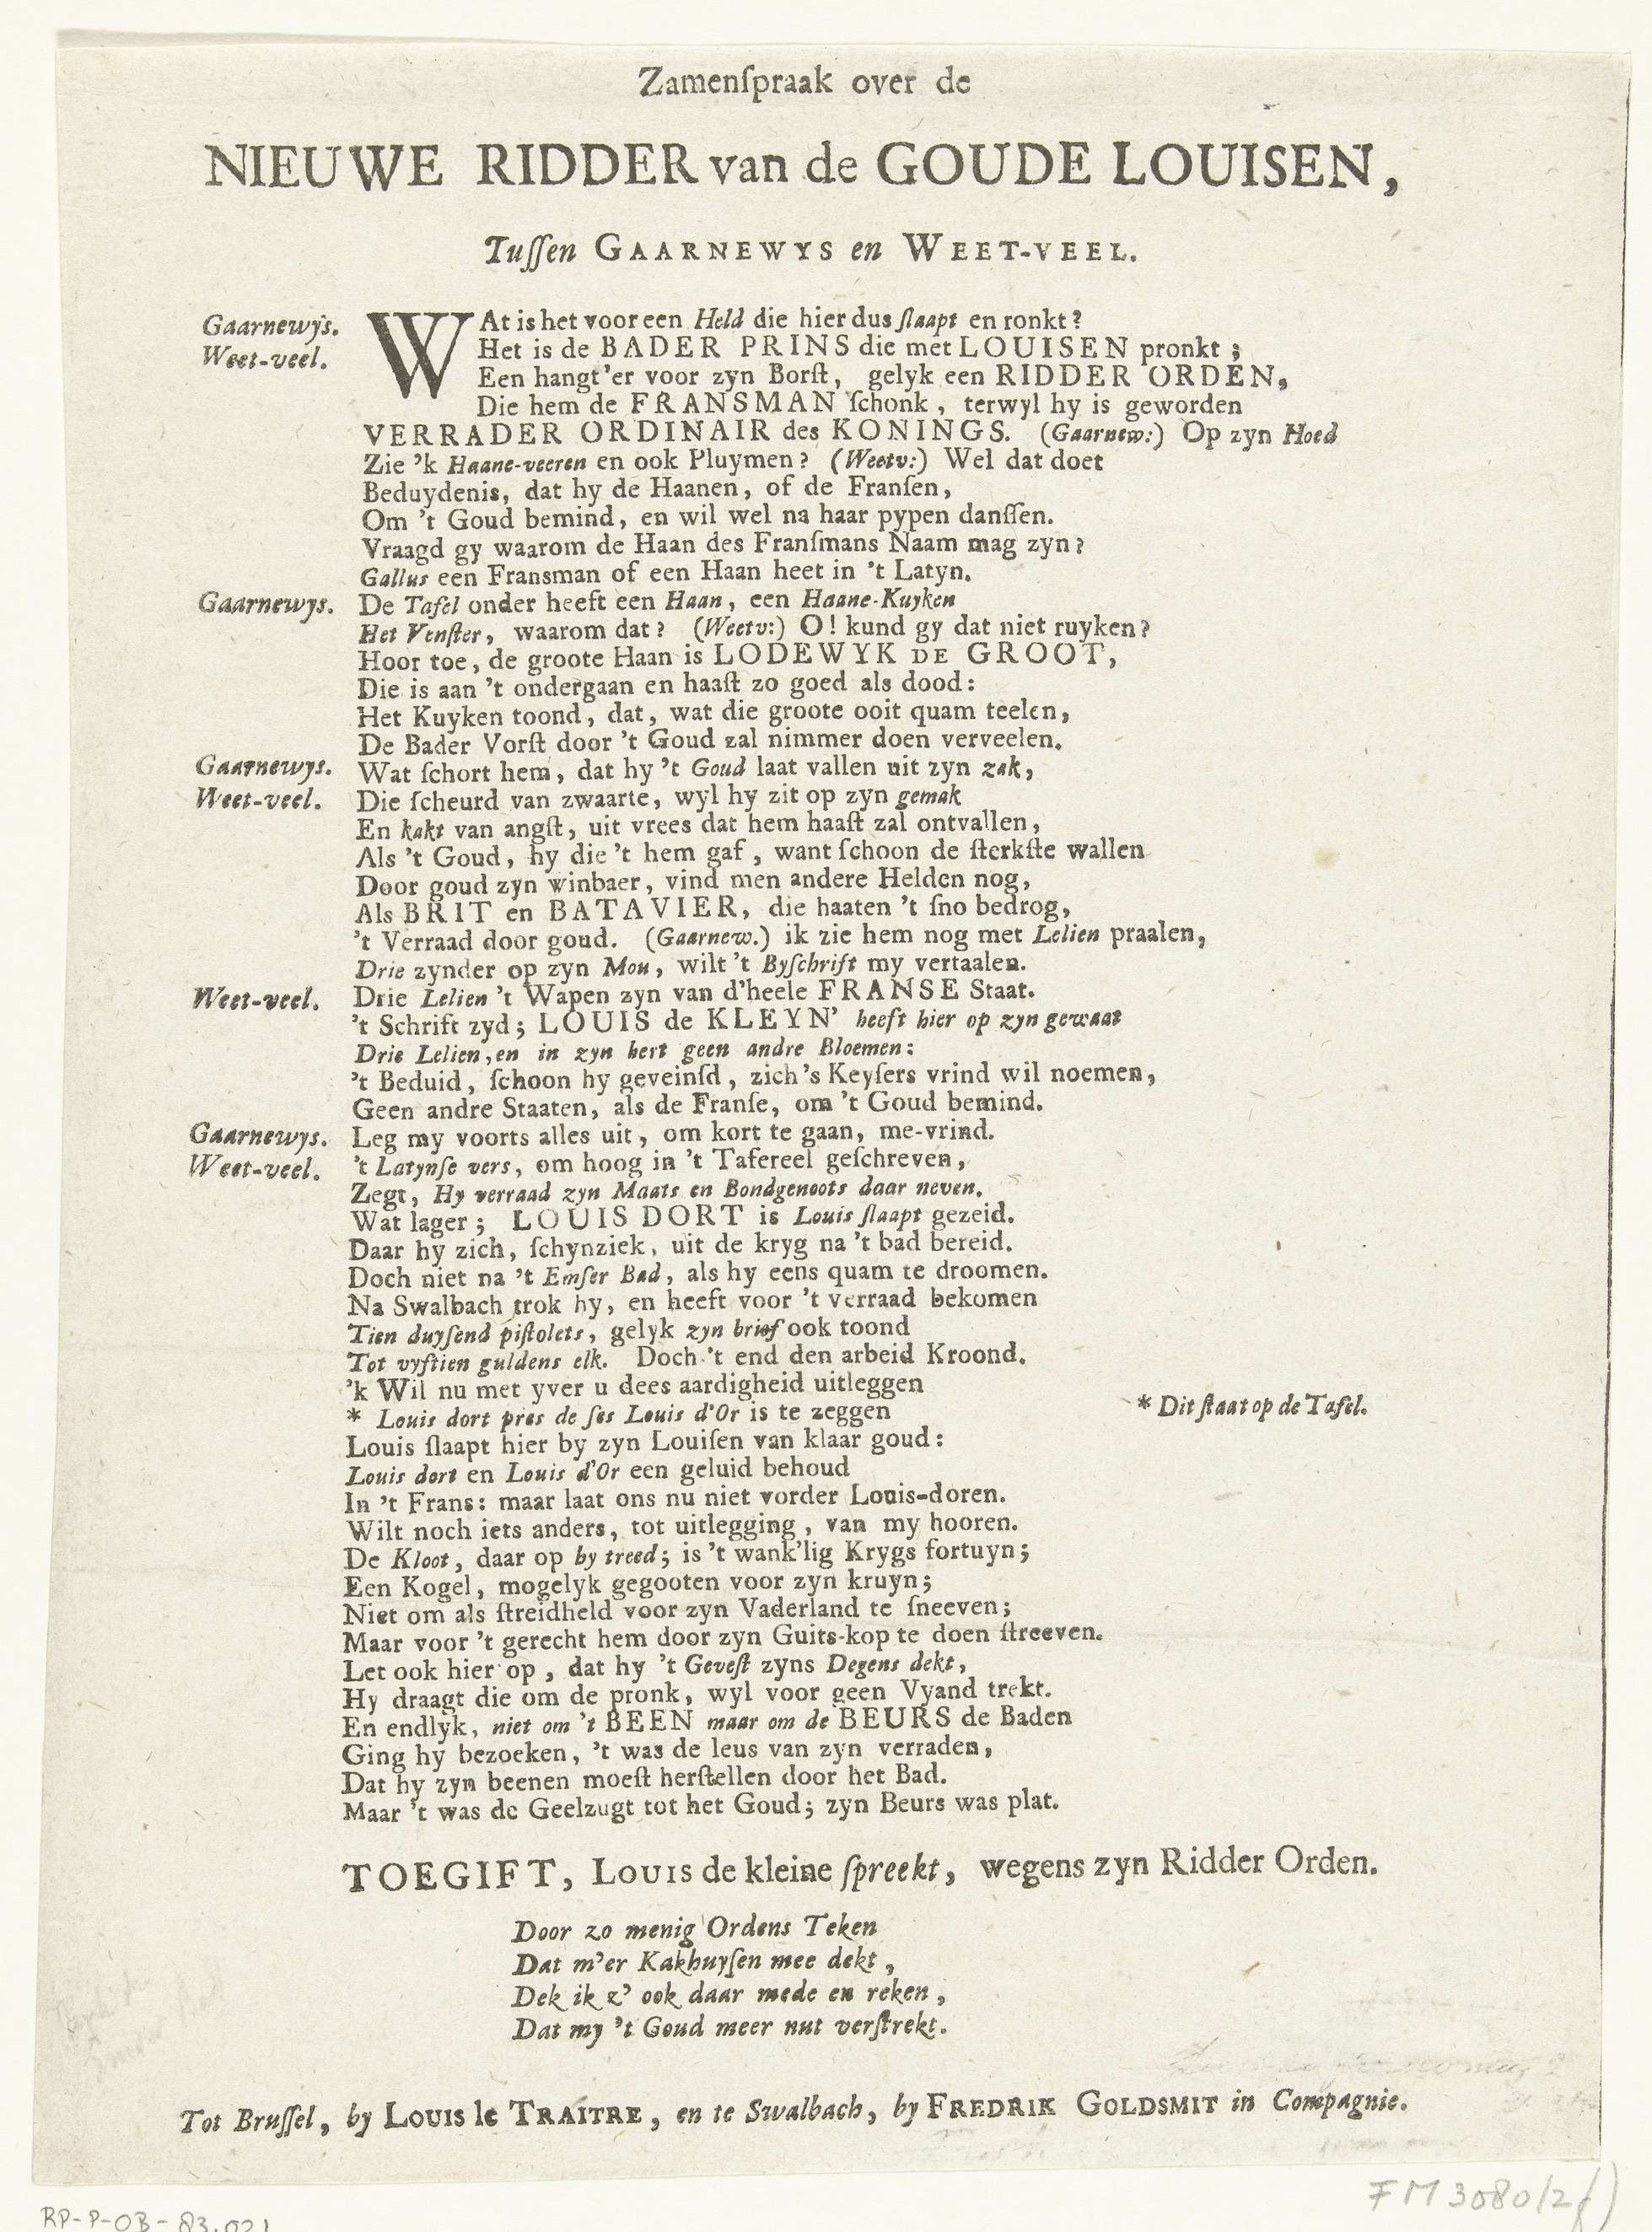 Zamenſpraak over de
NIEUWE RIDDER van de GOUDE LOUISEN,
Tuſſen GAARNEWYS en WEET-VEEL.
Gaarnewys. WAt is het voor een Held die hier dus ſlaapt en ronkt?
Weet-veel. Het is de BADER PRINS die met LOUISEN pronkt;
Een hangt'er voor zyn Borſt, gelyk een RIDDER ORDEN,
Die hem de FRANSMAN ſchonk, terwyl hy is geworden
VERRADER ORDINAIR des KONINGS. (Gaarnew:) Op zyn Hoed
Zie 'k Haane-veeren en ook Pluymen? (Weetv:) Wel dat doet
Beduydenis, dat hy de Haanen, of de Franſen,
Om 't Goud bemind, en wil wel na haar pypen danſſen.
Vraagd gy waarom de Haan des Franſmans Naam mag zyn?
Gallus een Fransman of een Haan heet in 't Latyn.
Gaarnewys. De Tafel onder heeft een Haan, een Haane-Kuyken
Het Venſter, waarom dat? (Weetv:) O! kund gy dat niet ruyken?
Hoor toe, de groote Haan is LODEWYK DE GROOT,
Die is aan 't ondergaan en haaſt zo goed als dood:
Het Kuyken toond, dat, wat die groote ooit quam teelen,
De Bader Vorſt door 't Goud zal nimmer doen verveelen.
Gaarnewys. Wat ſchort hem, dat hy 't Goud laat vallen uit zyn zak,
Weet-veel. Die ſcheurd van zwaarte, wyl hy zit op zyn gemak
En kakt van angſt, uit vrees dat hem haaſt zal ontvallen,
Als 't Goud, hy die 't hem gaf, want ſchoon de ſterkſte wallen
Door goud zyn winbaer, vind men andere Helden nog,
Als BRIT en BATAVIER, die haaten 't ſno bedrog,
't Verraad door goud. (Gaarnew.) ik zie hem nog met Lelien praalen,
Drie zynder op zyn Mou, wilt 't Byſchrift my vertaalen.
Weet-veel. Drie Lelien 't Wapen zyn van d'heele FRANSE Staat.
't Schrift zyd; LOUIS de KLEYN' heeft hier op zyn gewaat
Drie Lelien, en in zyn hert geen andre Bloemen:
't Beduid, ſchoon hy geveinſd, zich 's Keyſers vrind wil noemen,
Geen andre Staaten, als de Franſe, om 't Goud bemind.
Gaarnewys. Leg my voorts alles uit, om kort te gaan, me-vrind.
Weet-veel. 't Latynſe vers, om hoog in 't Tafereel geſchreven,
Zegt, Hy verraad zyn Maats en Bondgenoots daar neven.
Wat lager; LOUIS DORT is Louis ſlaapt gezeid.
Daar hy zich, ſchynziek, uit de kryg na 't bad bereid.
Doch niet na 't Emſer Bad, als hy eens quam te droomen.
Na Swalbach trok hy, en heeft voor 't verraad bekomen
Tien duyſend piſtolets, gelyk zyn brief ook toond
Tot vyftien guldens elk. Doch 't end den arbeid Kroond.
'k Wil nu met yver u dees aardigheid uitleggen
* Louis dort pres de ſes Louis d'Or is te zeggen
* Dit ſtaat op de Tafel.
Louis ſlaapt hier by zyn Louiſen van klaar goud:
Louis dort en Louis d'Or een geluid behoud
In 't Frans: maar laat ons nu niet vorder Louis-doren.
Wilt noch iets anders, tot uitlegging, van my hooren.
De Kloot, daar op hy treed; is 't wank'lig Krygs fortuyn;
Een Kogel, mogelyk gegooten voor zyn kruyn;
Niet om als ſtreidheld voor zyn Vaderland te ſneeven;
Maar voor 't gerecht hem door zyn Guits-kop te doen ſtreeven.
Let ook hier op, dat hy 't Geveſt zyns Degens dekt,
Hy draagt die om de pronk, wyl voor geen Vyand trekt.
En endlyk, niet om 't BEEN maar om de BEURS de Baden
Ging hy bezoeken, 't was de leus van zyn verraden,
Dat hy zyn beenen moeſt herſtellen door het Bad.
Maar 't was de Geelzugt tot het Goud; zyn Beurs was plat.
TOEGIFT, LOUIS de kleine ſpreekt, wegens zyn Ridder Orden.
Door zo menig Ordens Teken
Dat m'er Kakhuyſen mee dekt,
Dek ik z' ook daar mede en reken,
Dat my 't Goud meer nut verſtrekt.
Tot Bruſſel, by LOUIS le TRAÎTRE, en te Swalbach, by FREDRIK GOLDSMIT in Compagnie.
FM 3080/2f)
RP-P-OB-83.021